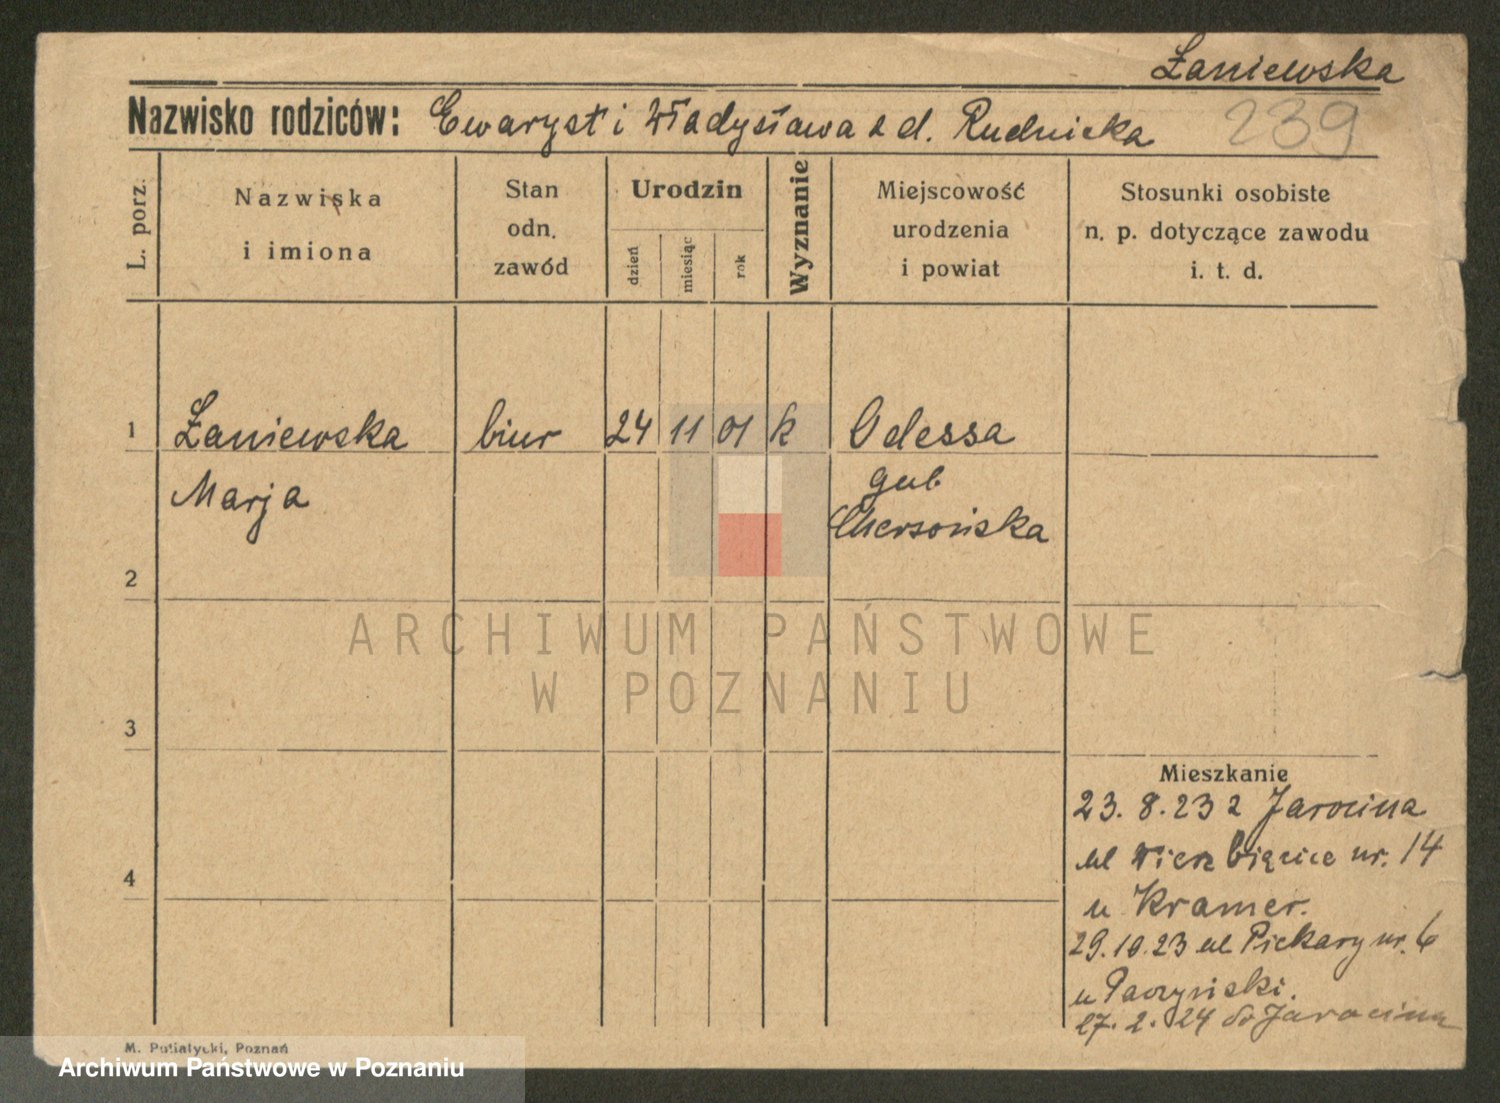 Łaniewska
Nazwisko rodziców: Ewaryst i Władysława z d. Rudnicka
239
L. porz.
Nazwiska
i imiona
Stan
odn.
zawód
Urodzin
dzień
miesiąc
rok
Wyznanie
Miejscowość
urodzenia
i powiat
Stosunki osobiste
n. p. dotyczące zawodu
i. t. d.
1 Łaniewska biur 24 11 01 k Odessa
Marja
gub
Chersońska
2
ARCHIWUM PAŃSTWOWE
W POZNANIU
3
Mieszkanie
23. 8. 23 z Jarocina
ul Wierzbięcice nr. 14
4
u Kramer.
29.10.23 ul Piekary nr. 6
u Paczyński.
27. 2. 24 do Jarocina
M. Putiatycki, Poznań
Archiwum Państwowe w Poznaniu